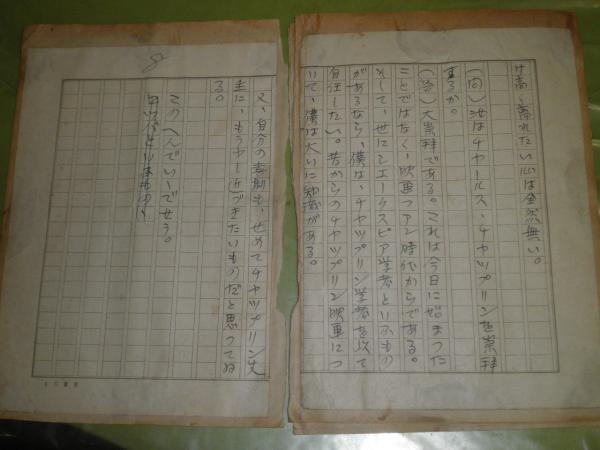 は高く蒐れたい心は全然無い。
(問) 汝はチヤールス・チヤツプリンを崇拝
するか。
(答) 大崇拝である。これは今日に始まつた
ことではなく、映画フアン時代からである。
そして、世にシエークスピア学者といふもの
があるなら、僕は、チヤツプリン学者を以て
自任したい。昔からのチヤツプリン映画につ
いて、僕は大いに知識がある。
8
又、自分の喜劇も、せめてチヤツプリン先
生に、もう少し近づきたいものだと思つてゐ
る。
このへんでいゝでせう。